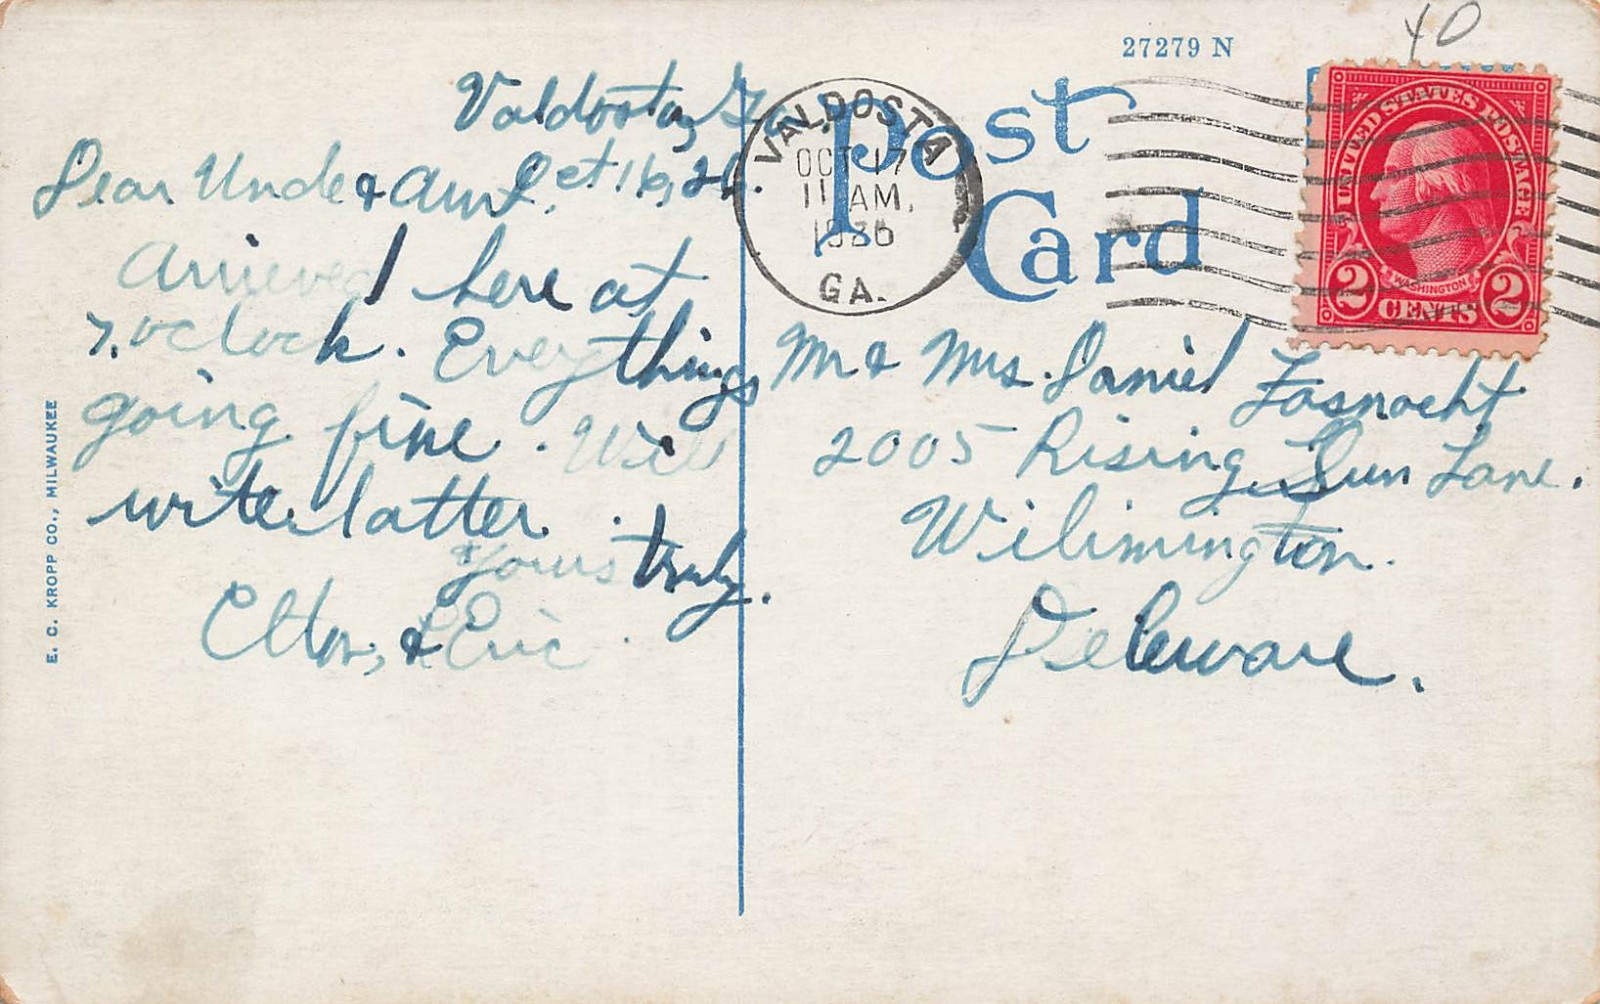 27279 N
40
Post
Card
VALDOSTA
OCT 17
11 AM.
GA.
UNITED STATES POSTAGE
WASHINGTON
2 CENTS 2
Valdosta, Ga.
Oct 16, 26.
Dear Uncle & Aunt.
Arrieved here at
7. oclock. Everythings
going fine. Will
write latter.
Yours truly.
Elton, & Eric.
Mr & Mrs. Daniel Fasnacht
2005 Rising Sun Lane.
Wilimington.
Deleware.
E. C. KROPP CO., MILWAUKEE